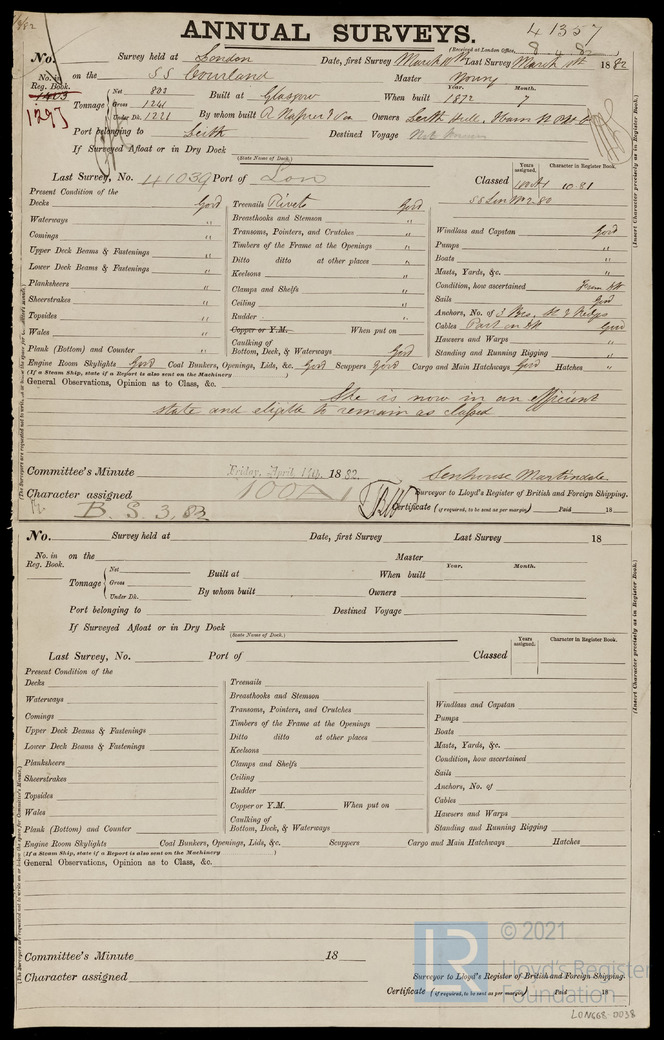 ANNUAL SURVEYS.
41357
(Received at London Office, 8.4.82)
No. Survey held at London Date, first Survey March Last Survey March 1882
No. in Reg. Book. on the SS Courland Master Young
1403
1293
Tonnage Net 803 Gross 1241 Under Dk. 1221 Built at Glasgow When built Year. 1872 Month. 7
By whom built R Napier & Son Owners Leith Hull,
Port belonging to Leith Destined Voyage Not known
If Surveyed Afloat or in Dry Dock
(State Name of Dock.)
Last Survey, No. 41039 Port of Lon Classed Years assigned. 100A1 Character in Register Book. 10.81
SS Lon No 2.80
(Insert Character precisely as in Register Book.)
Present Condition of the
Decks Good
Waterways "
Comings "
Upper Deck Beams & Fastenings "
Lower Deck Beams & Fastenings "
Planksheers "
Sheerstrakes "
Topsides "
Wales "
Plank (Bottom) and Counter "
Treenails Rivets Good
Breasthooks and Stemson "
Transoms, Pointers, and Crutches "
Timbers of the Frame at the Openings "
Ditto ditto at other places "
Keelsons "
Clamps and Shelfs "
Ceiling "
Rudder "
Copper or Y.M. When put on
Caulking of
Bottom, Deck, & Waterways Good
Windlass and Capstan Good
Pumps "
Boats "
Masts, Yards, &c. "
Condition, how ascertained From Dk
Sails Good
Anchors, No. of 3 Brs, St & Kedge
Cables Part on Dk Good
Hawsers and Warps "
Standing and Running Rigging "
Engine Room Skylights Good Coal Bunkers, Openings, Lids, &c. Good Scuppers Good Cargo and Main Hatchways Good Hatches "
(If a Steam Ship, state if a Report is also sent on the Machinery )
General Observations, Opinion as to Class, &c.
She is now in an efficient
state and eligible to remain as classed
Committee's Minute Friday, April 14th. 1882.
Senhouse Martindale.
Character assigned 100A1
Surveyor to Lloyd's Register of British and Foreign Shipping.
B.S. 3.82
Certificate (if required, to be sent as per margin) Paid 18
No. Survey held at Date, first Survey Last Survey 18
No. in Reg. Book. on the Master
Tonnage Net Gross Under Dk. Built at When built Year. Month.
By whom built Owners
Port belonging to Destined Voyage
If Surveyed Afloat or in Dry Dock
(State Name of Dock.)
Last Survey, No. Port of Classed Years assigned. Character in Register Book.
(Insert Character precisely as in Register Book.)
Present Condition of the
Decks
Waterways
Comings
Upper Deck Beams & Fastenings
Lower Deck Beams & Fastenings
Planksheers
Sheerstrakes
Topsides
Wales
Plank (Bottom) and Counter
Treenails
Breasthooks and Stemson
Transoms, Pointers, and Crutches
Timbers of the Frame at the Openings
Ditto ditto at other places
Keelsons
Clamps and Shelfs
Ceiling
Rudder
Copper or Y.M. When put on
Caulking of
Bottom, Deck, & Waterways
Windlass and Capstan
Pumps
Boats
Masts, Yards, &c.
Condition, how ascertained
Sails
Anchors, No. of
Cables
Hawsers and Warps
Standing and Running Rigging
Engine Room Skylights Coal Bunkers, Openings, Lids, &c. Scuppers Cargo and Main Hatchways Hatches
(If a Steam Ship, state if a Report is also sent on the Machinery )
General Observations, Opinion as to Class, &c.
Committee's Minute 18
Character assigned
Surveyor to Lloyd's Register of British and Foreign Shipping.
Certificate (if required, to be sent as per margin) Paid 18
LR © 2021
Lloyd's Register
Foundation
LON668-0038